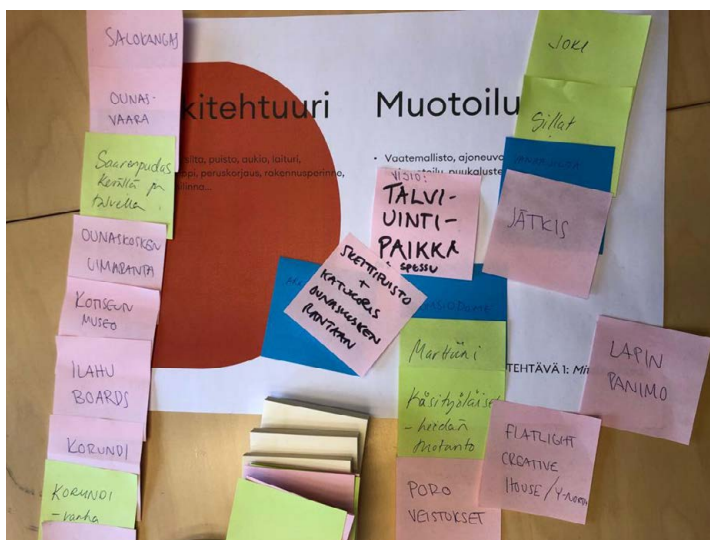 SALOKANGAS
OUNAS-
VAARA
Saarenpudas
Keväällä ja
talvella
OUNASKOSKEN
UIMARANTA
KOTISEUN
MUSEO
ILAHU
BOARDS
KORUNDI
KORUNDI
- vanha
kitehtuuri
silta, puisto, aukio, laituri,
ppi, peruskorjaus, rakennusperinne,
linna...
Muotoilu
• Vaatemallisto, ajoneuvo
muotoilu, puukaluste
VISIO:
TALVI-
UINTI-
PAIKKA
SPESSU
SKEITTIPUISTO
+
KATUKORIS
OUNASKOSKEN
RANTAAN
JOKI
Sillat
JÄTKIS
Marttiini
Käsityöläiset
- heidän
tuotanto
PORO
VEISTOKSET
TEHTÄVÄ 1: Mit
LAPIN
PANIMO
FLATLIGHT
CREATIVE
HOUSE / Y-NORTH